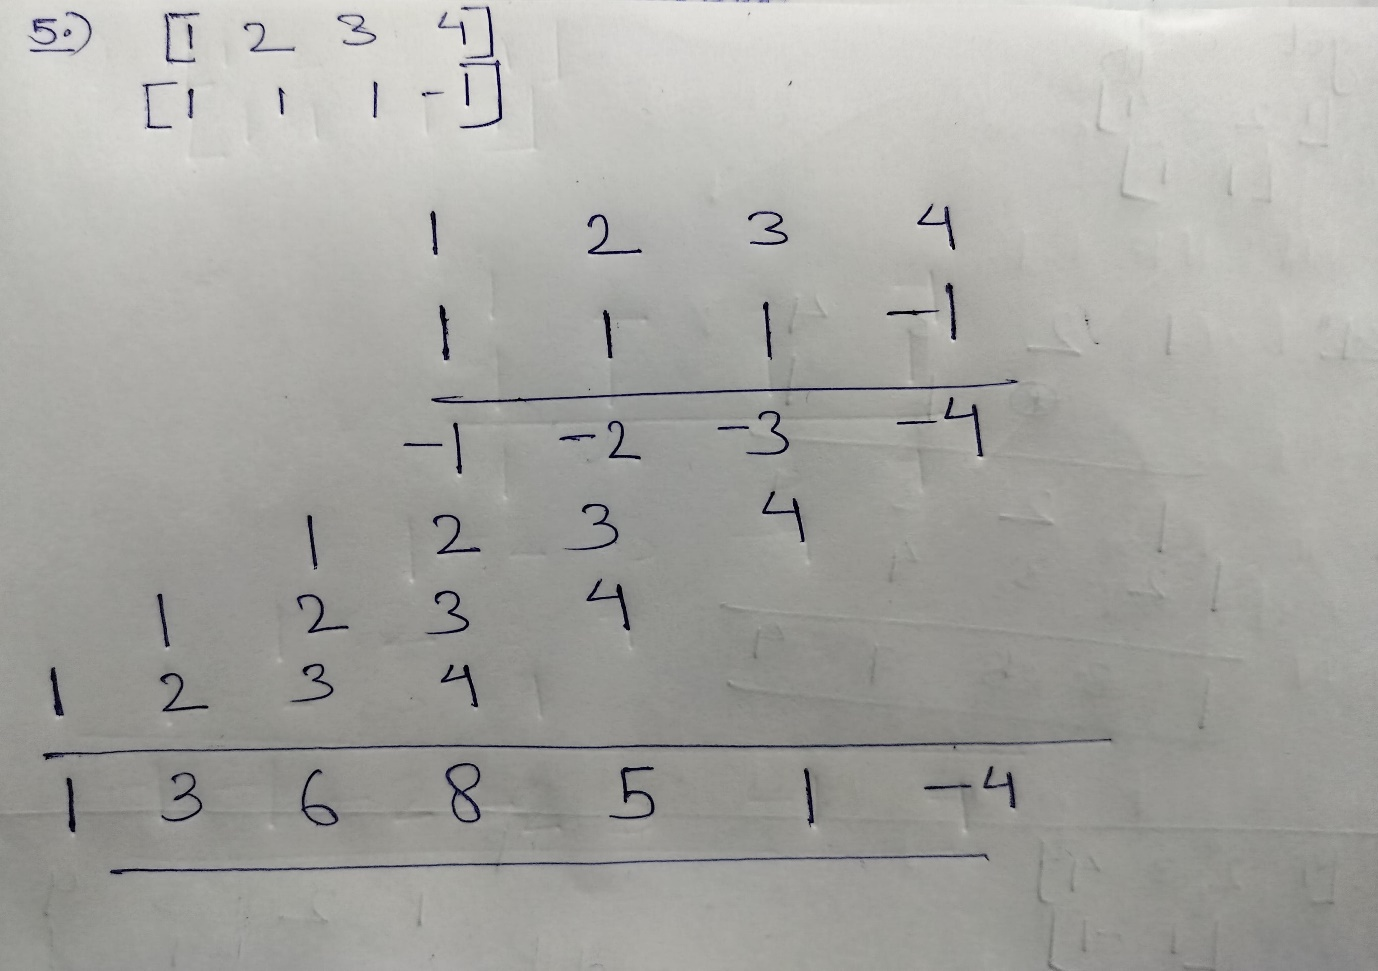 5.) [1 2 3 4]
[1 1 1 -1]
1 2 3 4
1 1 1 -1
-1 -2 -3 -4
1 2 3 4
1 2 3 4
1 2 3 4
1 3 6 8 5 1 -4